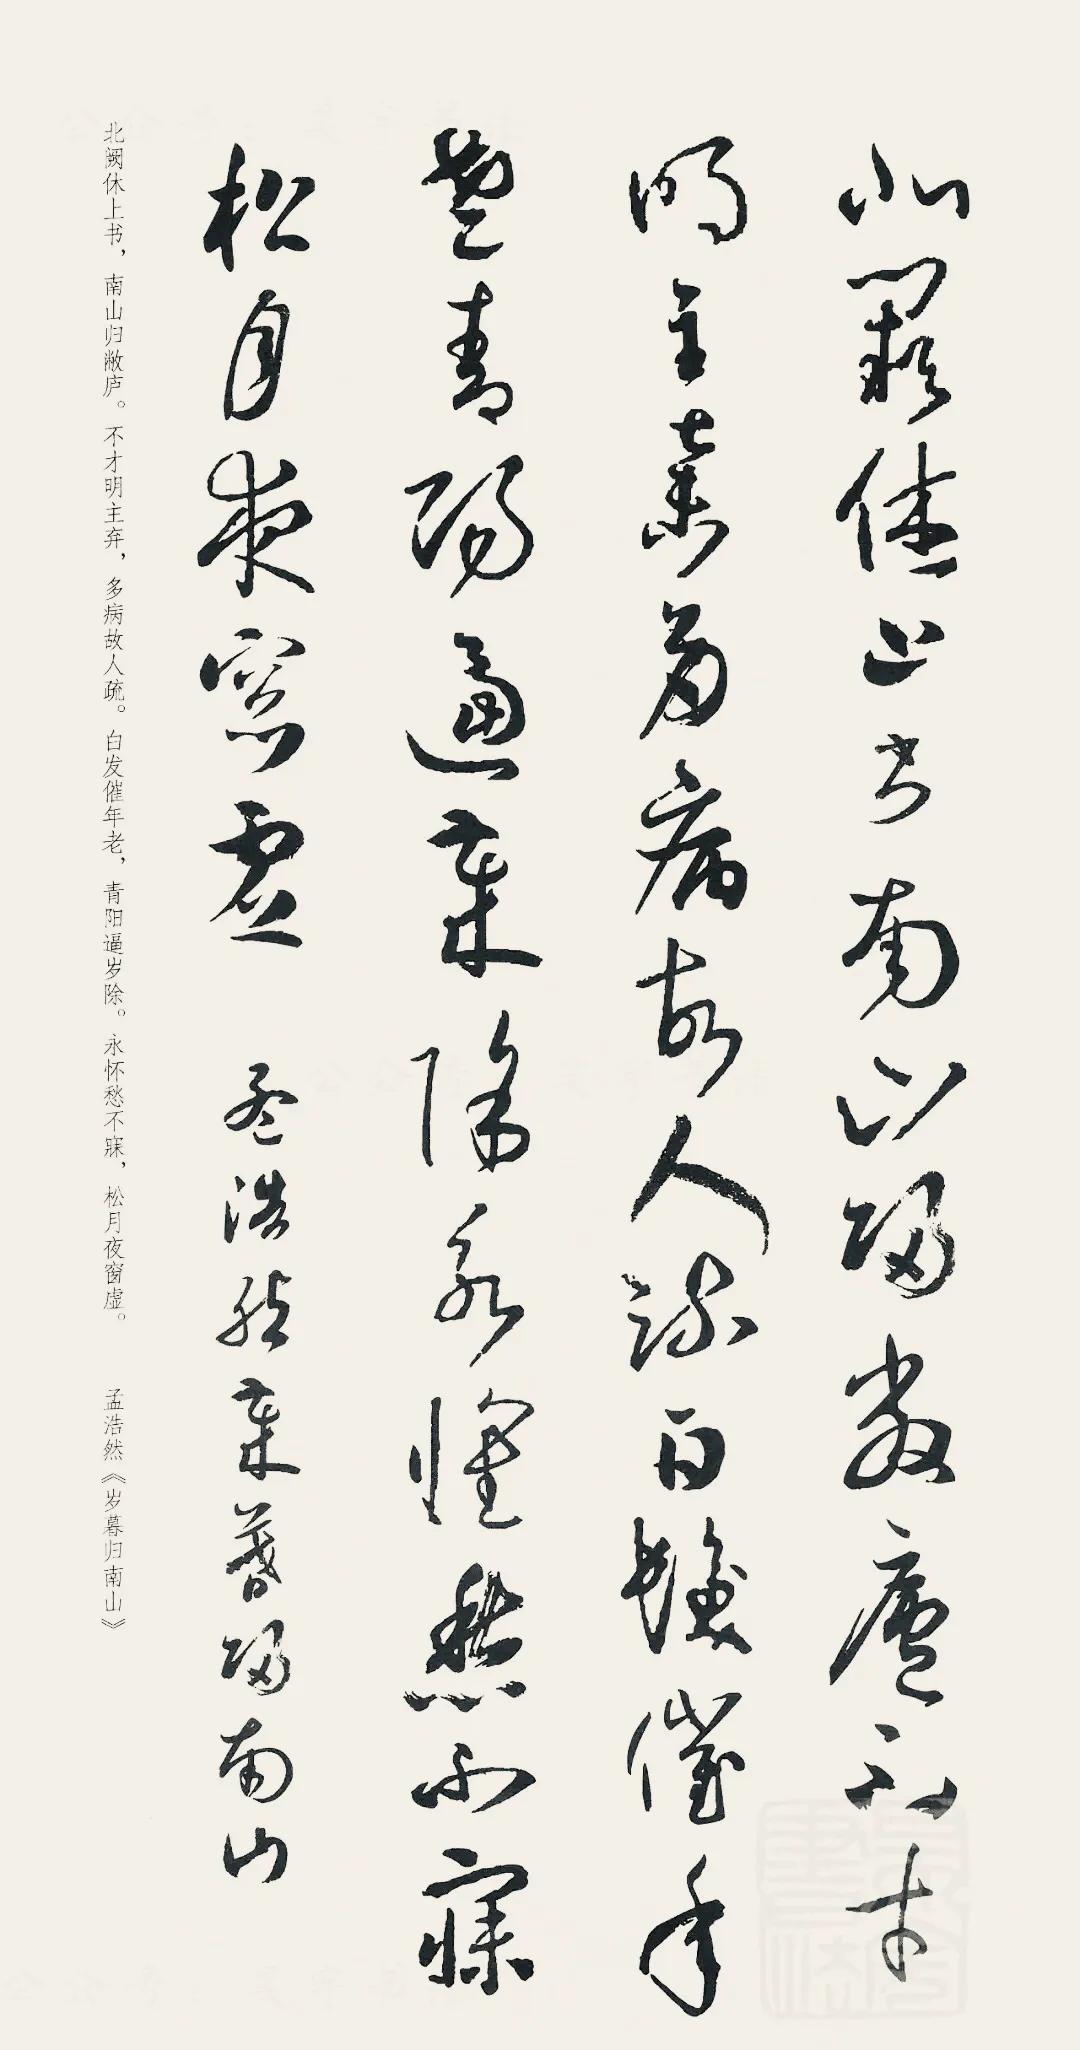 北闕休上書南山歸敝廬不才
明主棄多病故人疏白髮催年
老青陽逼歲除永懷愁不寐
松月夜窗虛 孟浩然歲暮歸南山
北阙休上书，南山归敝庐。不才明主弃，多病故人疏。白发催年老，青阳逼岁除。永怀愁不寐，松月夜窗虚。 孟浩然《岁暮归南山》